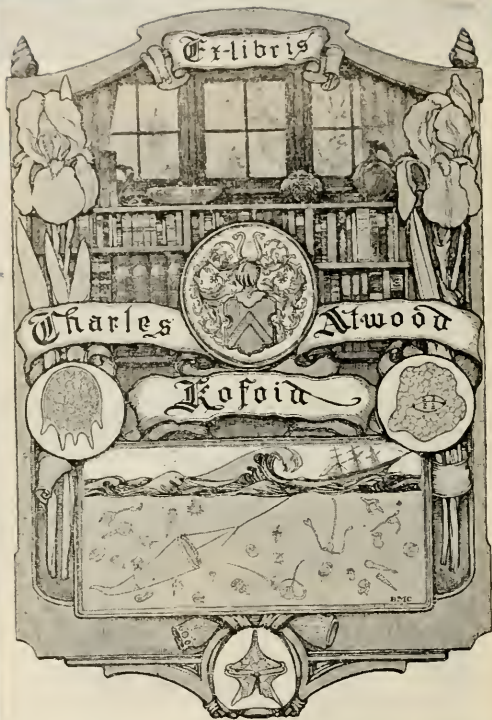 Ex-libris
Charles Atwood
Kofoid
BMC